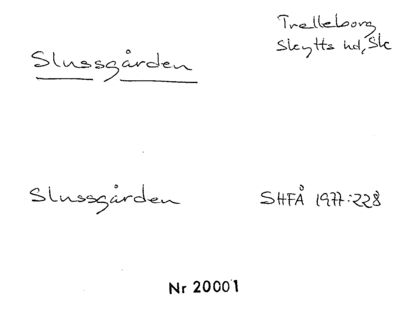 Trelleborg
Skytts hd, Sk
Slussgården
Slussgården SHFÅ 1977:228
Nr 20001